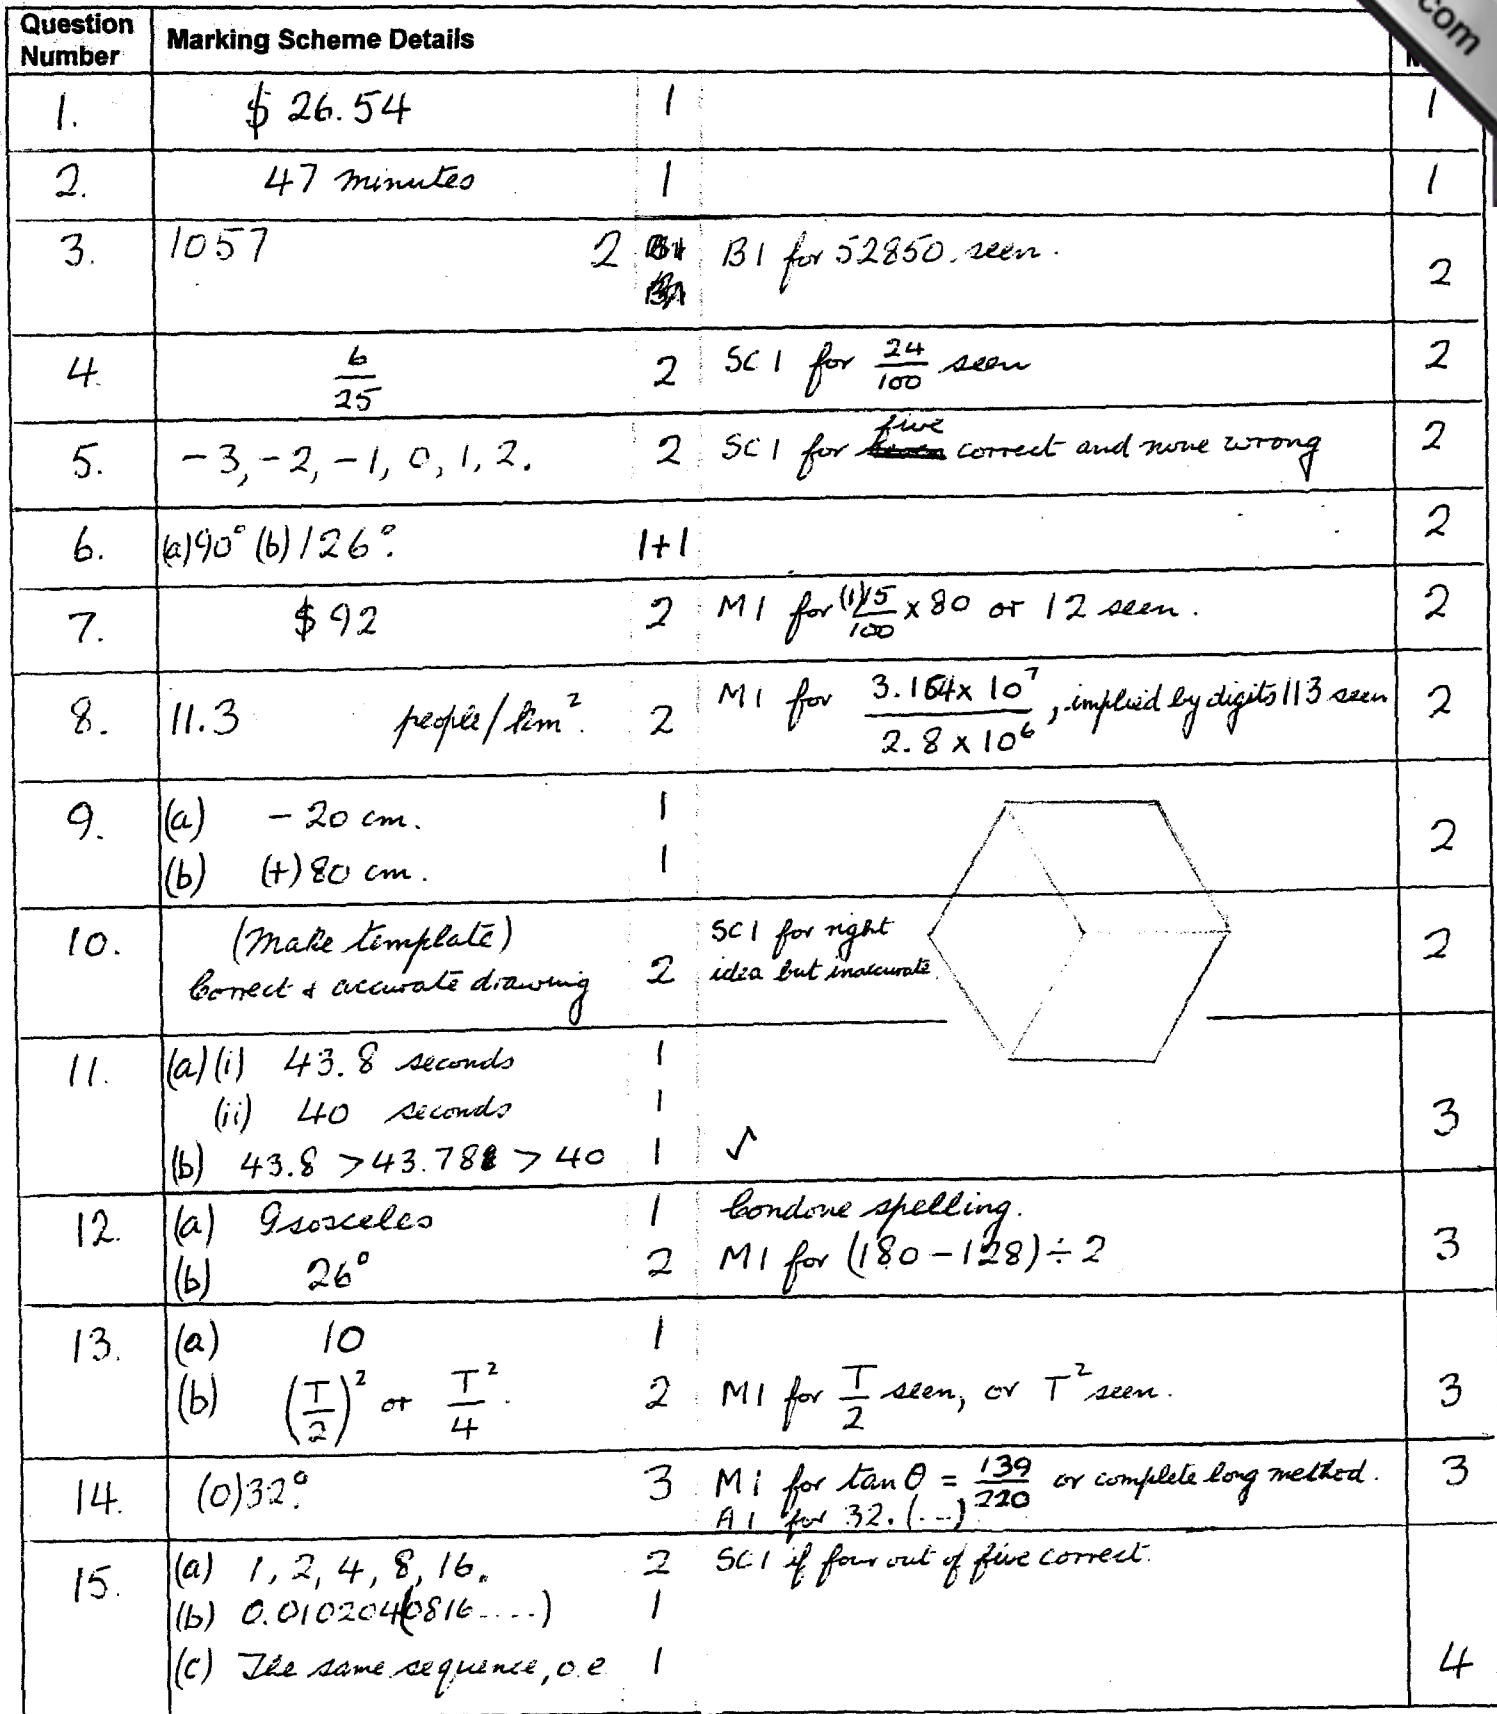 com
Question Number Marking Scheme Details
1. $ 26.54 1 1
2. 47 minutes 1 1
3. 1057 2 B1 for 52850. seen. 2
4. 6/25 2 SC1 for 24/100 seen 2
5. -3, -2, -1, 0, 1, 2. 2 SC1 for five correct and none wrong 2
6. (a) 90° (b) 126°. 1+1 2
7. $92 2 M1 for (1)15/100 x 80 or 12 seen. 2
8. 11.3 people/km². 2 M1 for 3.164 x 10⁷ / 2.8 x 10⁶, implied by digits 113 seen 2
9. (a) -20 cm. 1
(b) (+)80 cm. 1 2
10. (Make template) SC1 for right 2
Correct & accurate drawing 2 idea but inaccurate.
11. (a)(i) 43.8 seconds 1
(ii) 40 seconds 1 3
(b) 43.8 > 43.78 > 40 1 √
12. (a) Isosceles 1 Condone spelling. 3
(b) 26° 2 M1 for (180 - 128) ÷ 2
13. (a) 10 1
(b) (T/2)² or T²/4. 2 M1 for T/2 seen, or T² seen. 3
14. (0)32°. 3 M1 for tan θ = 139/220 or complete long method. 3
A1 for 32.(...)
15. (a) 1, 2, 4, 8, 16. 2 SC1 if four out of five correct.
(b) 0.0102040816....) 1
(c) The same sequence, o.e 1 4